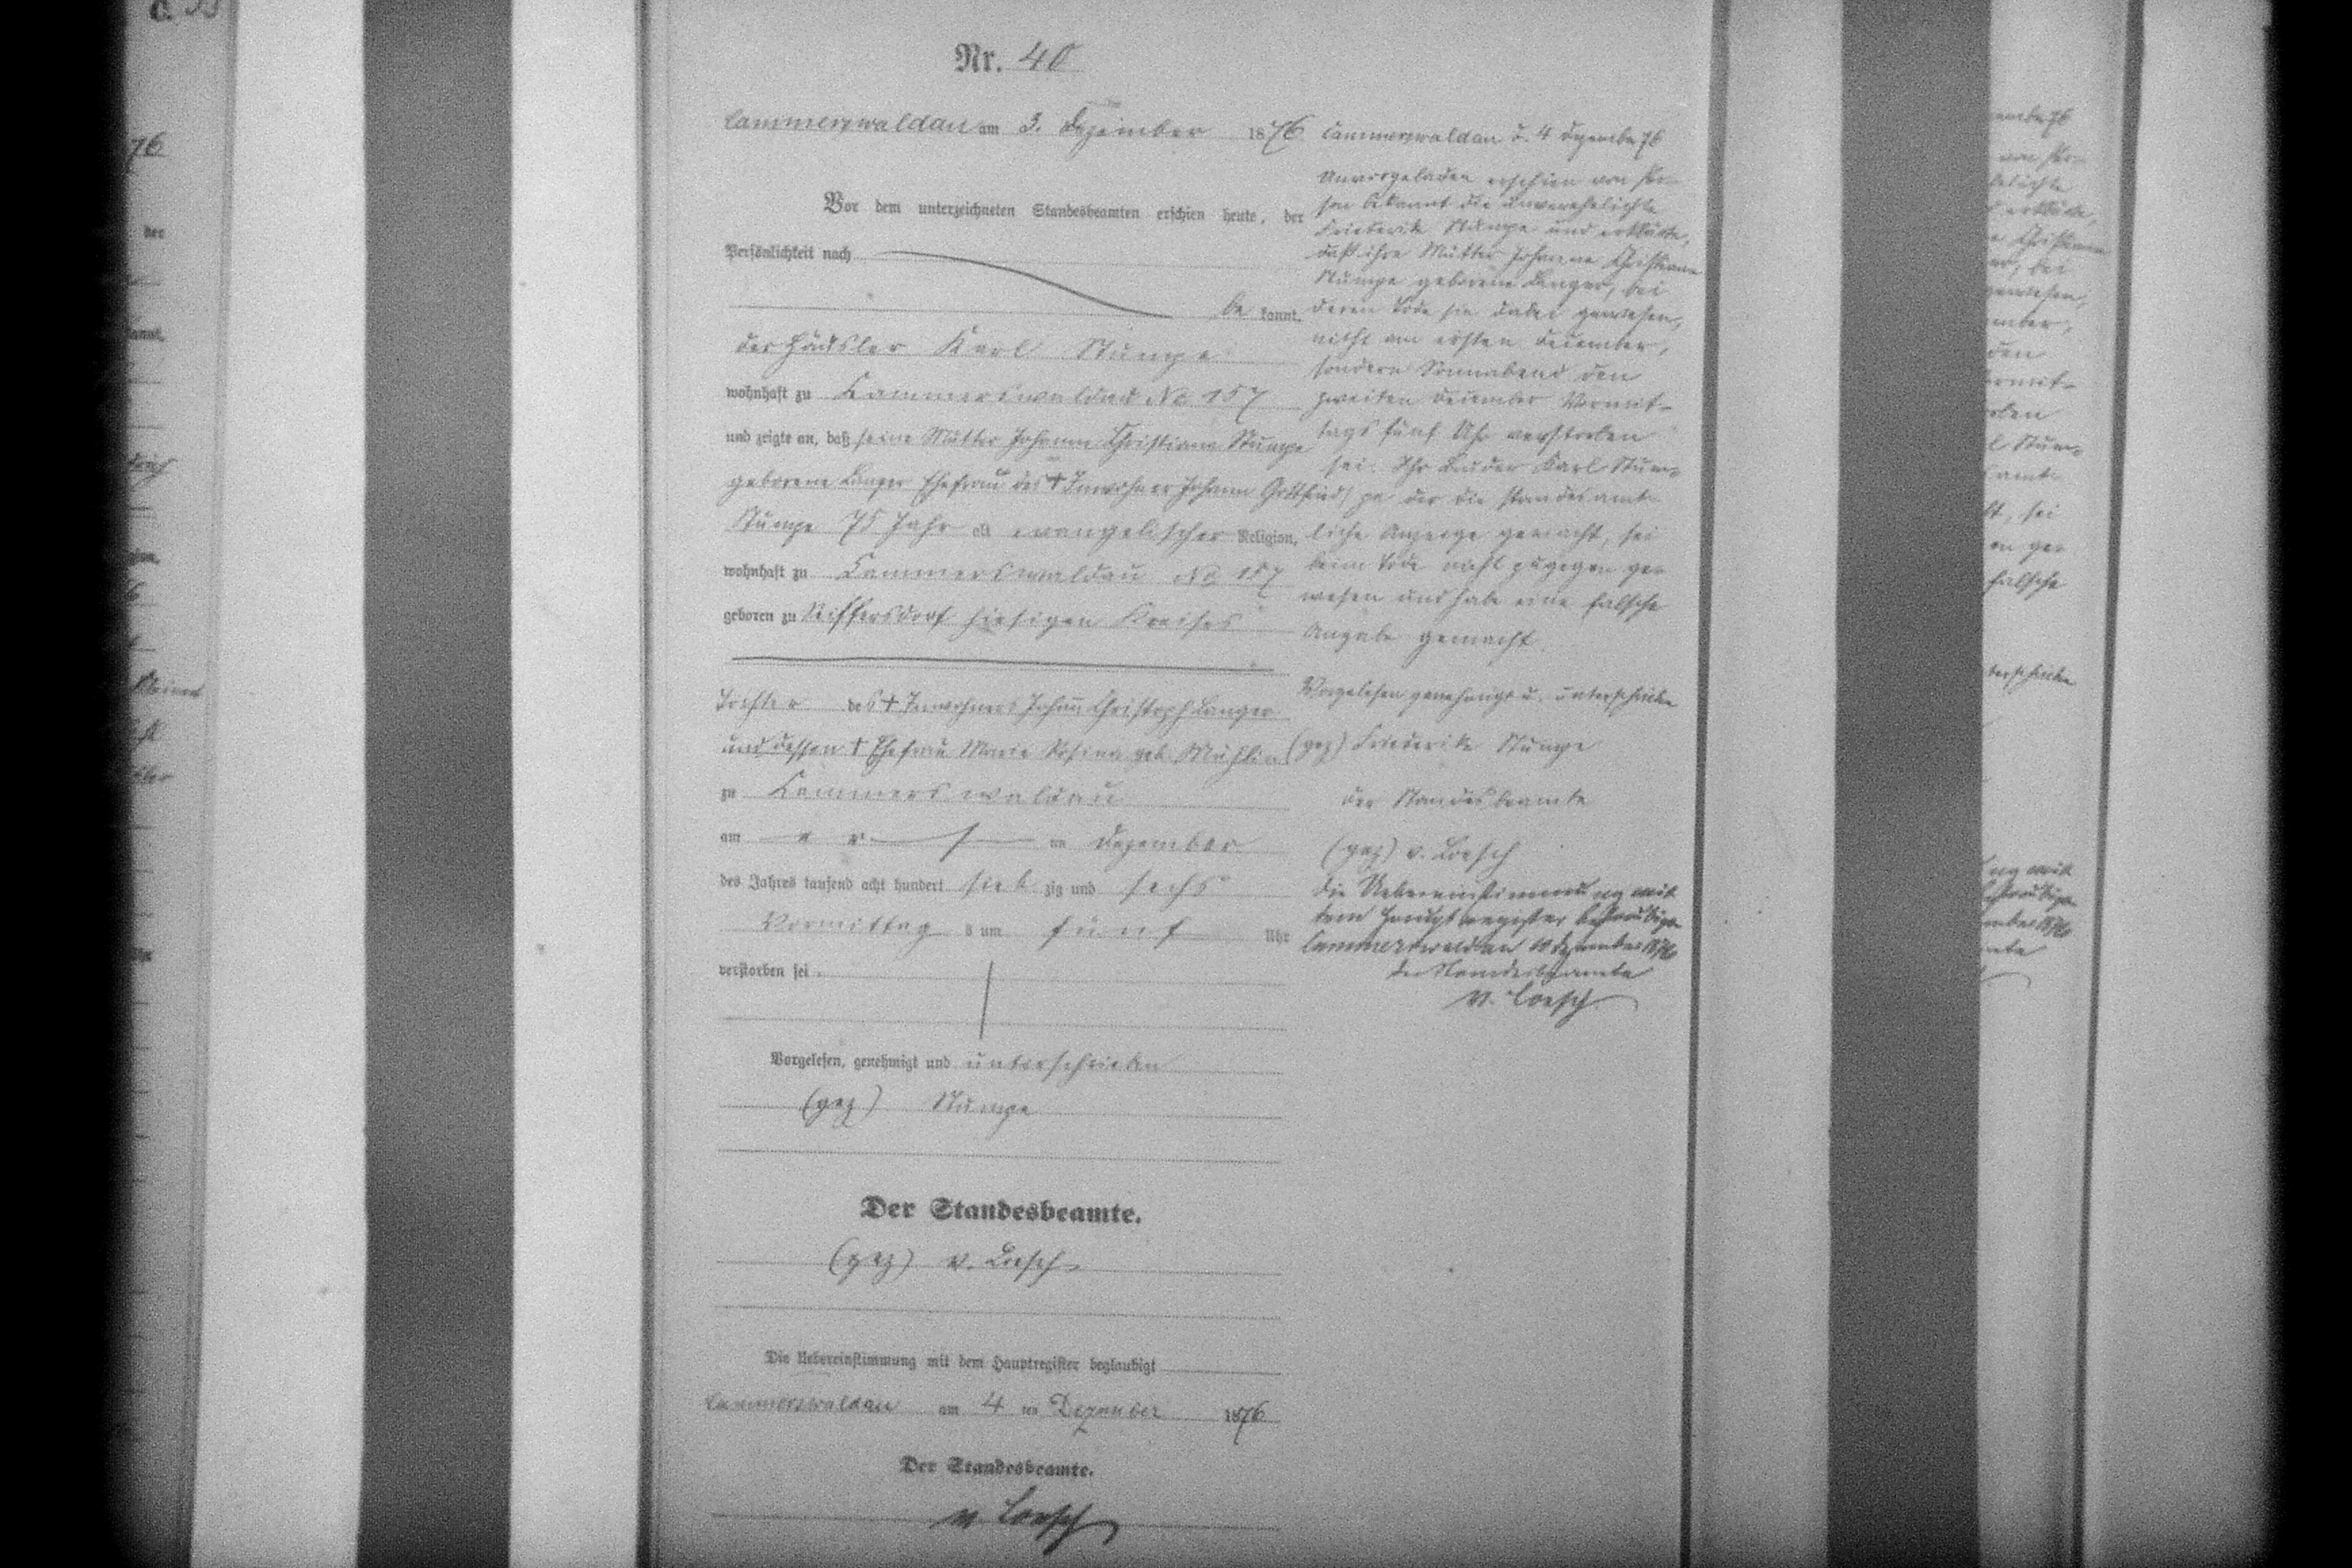 Nr. 40
Cammerswaldau am 3. Dezember 1876
Vor dem unterzeichneten Standesbeamten erschien heute, der
Persönlichkeit nach
be kannt,
der Häusler Karl Stumpe
wohnhaft zu Cammerswaldau No 157
und zeigte an, daß seine Mutter Johanne Christiane Stumpe
geborene Langer Ehefrau des † Inwohner Johann Gottfried
Stumpe 75 Jahr alt evangelischer Religion,
wohnhaft zu Cammerswaldau No 157
geboren zu Seiffersdorf hiesigen Kreises
Tochter des † Inwohners Johann Christoph Langer
und dessen † Ehefrau Marie Rosina geb.
zu Cammerswaldau
am ers ten Dezember
des Jahres tausend acht hundert sieb zig und sechs
Vormittag s um fünf Uhr
verstorben sei.
Vorgelesen, genehmigt und unterschrieben
(gez) Stumpe
Der Standesbeamte.
(gez) v. Loesch
Die Uebereinstimmung mit dem Hauptregister beglaubigt
Cammerswaldau am 4 ten Dezember 1876
Der Standesbeamte.
v. Loesch
Cammerswaldau d. 4 Dezember 76
Unvorgeladen erschien von Per-
son bekannt die unverehelichte
Friederike Stumpe und erklärte,
daß ihre Mutter Johanne Christiane
Stumpe geborene Langer, bei
deren Tode sie dabei gewesen,
nicht am ersten December,
sondern Sonnabend den
zweiten December Vormit-
tags fünf Uhr verstorben
sei. Ihr Bruder Karl Stum-
pe der die standesamt-
liche Anzeige gemacht, sei
beim Tode nicht zugegen ge-
wesen und habe eine falsche
Angabe gemacht.
Vorgelesen genehmigt u. unterschrieben
(gez) Friederike Stumpe
der Standesbeamte
(gez) v. Loesch
Die Uebereinstimmung mit
dem Hauptregister beglaubigt
Cammerswaldau Dezember 1876
der Standesbeamte
v. Loesch